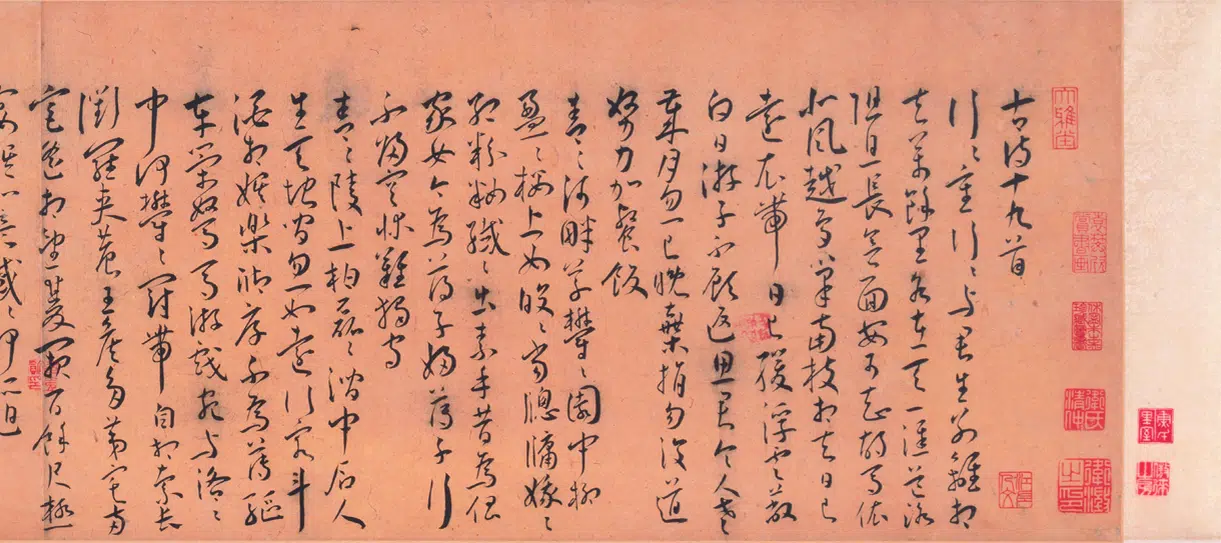 古詩十九首
行〻重行〻与君生別離相
去萬餘里各在天一涯道路
阻且長會面安可知胡馬依
北風越鳥巢南枝相去日已
遠衣帶日已緩浮雲蔽
白日游子不顧返思君令人老
歲月忽已晚棄捐勿復道
努力加餐飯
青〻河畔草鬱〻園中柳
盈〻樓上女皎〻當牕牖娥〻
紅粉妝纖〻出素手昔為倡
家女今為蕩子婦蕩子行
不歸空牀難獨守
青〻陵上柏磊〻澗中石人
生天地間忽如遠行客斗
酒相娛樂聊厚不為薄驅
車策駑馬游戲宛与洛〻
中何鬱〻冠帶自相索長
衢羅夾巷王侯多第宅兩
宮遙相望雙闕百餘尺極
宴娛心意戚〻何所迫